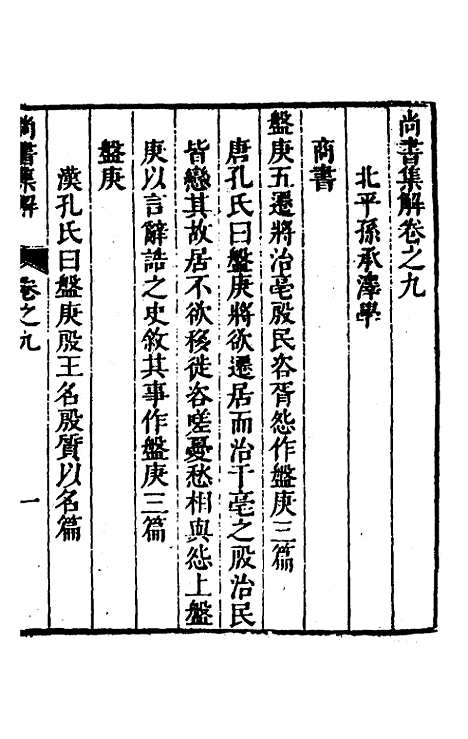 尚書集解卷之九
北平孫承澤學
商書
盤庚五遷將治亳殷民咨胥怨作盤庚三篇
唐孔氏曰盤庚將欲遷居而治于亳之殷治民
皆戀其故居不欲移徙咨嗟憂愁相與怨上盤
庚以言辭誥之史敘其事作盤庚三篇
盤庚
漢孔氏曰盤庚殷王名殷質以名篇
尚書集解 卷之九 一